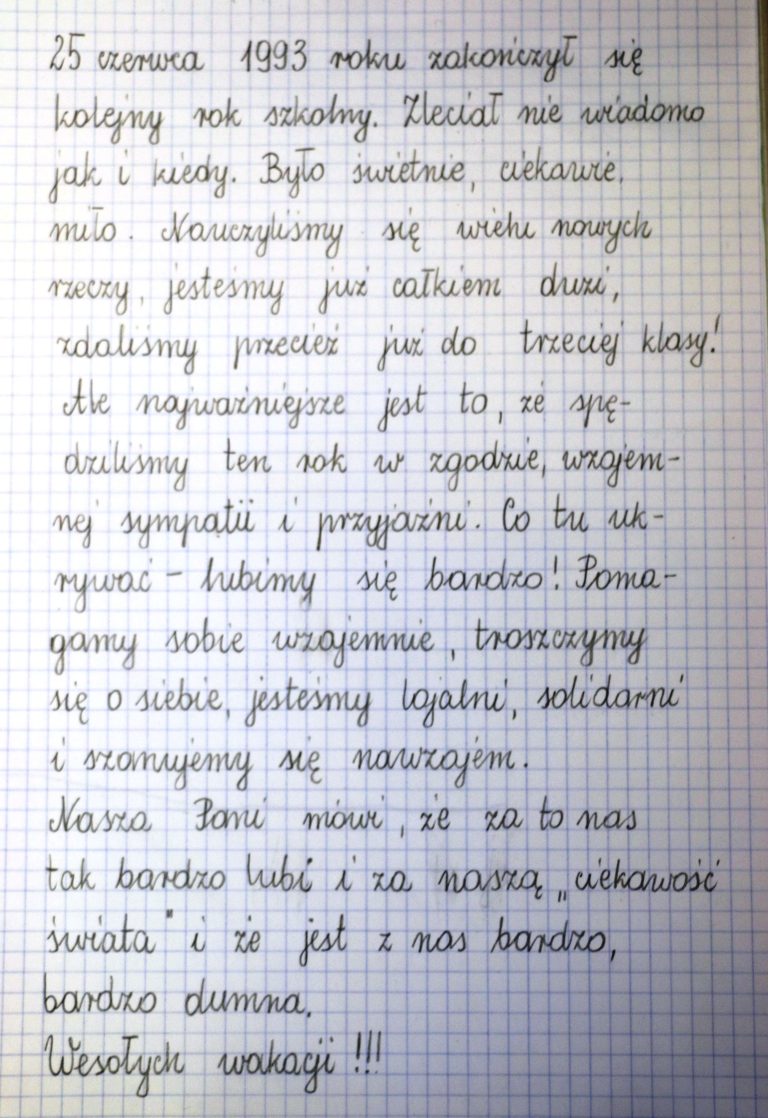 25 czerwca 1993 roku zakończył się
kolejny rok szkolny. Zleciał nie wiadomo
jak i kiedy. Było świetnie, ciekawie,
miło. Nauczyliśmy się wielu nowych
rzeczy, jesteśmy już całkiem duzi,
zdaliśmy przecież już do trzeciej klasy!
Ale najważniejsze jest to, że spę-
dziliśmy ten rok w zgodzie, wzajem-
nej sympatii i przyjaźni. Co tu uk-
rywać - lubimy się bardzo! Poma-
gamy sobie wzajemnie, troszczymy
się o siebie, jesteśmy lojalni, solidarni
i szanujemy się nawzajem.
Nasza Pani mówi, że za to nas
tak bardzo lubi i za naszą „ciekawość
świata" i że jest z nas bardzo,
bardzo dumna.
Wesołych wakacji!!!